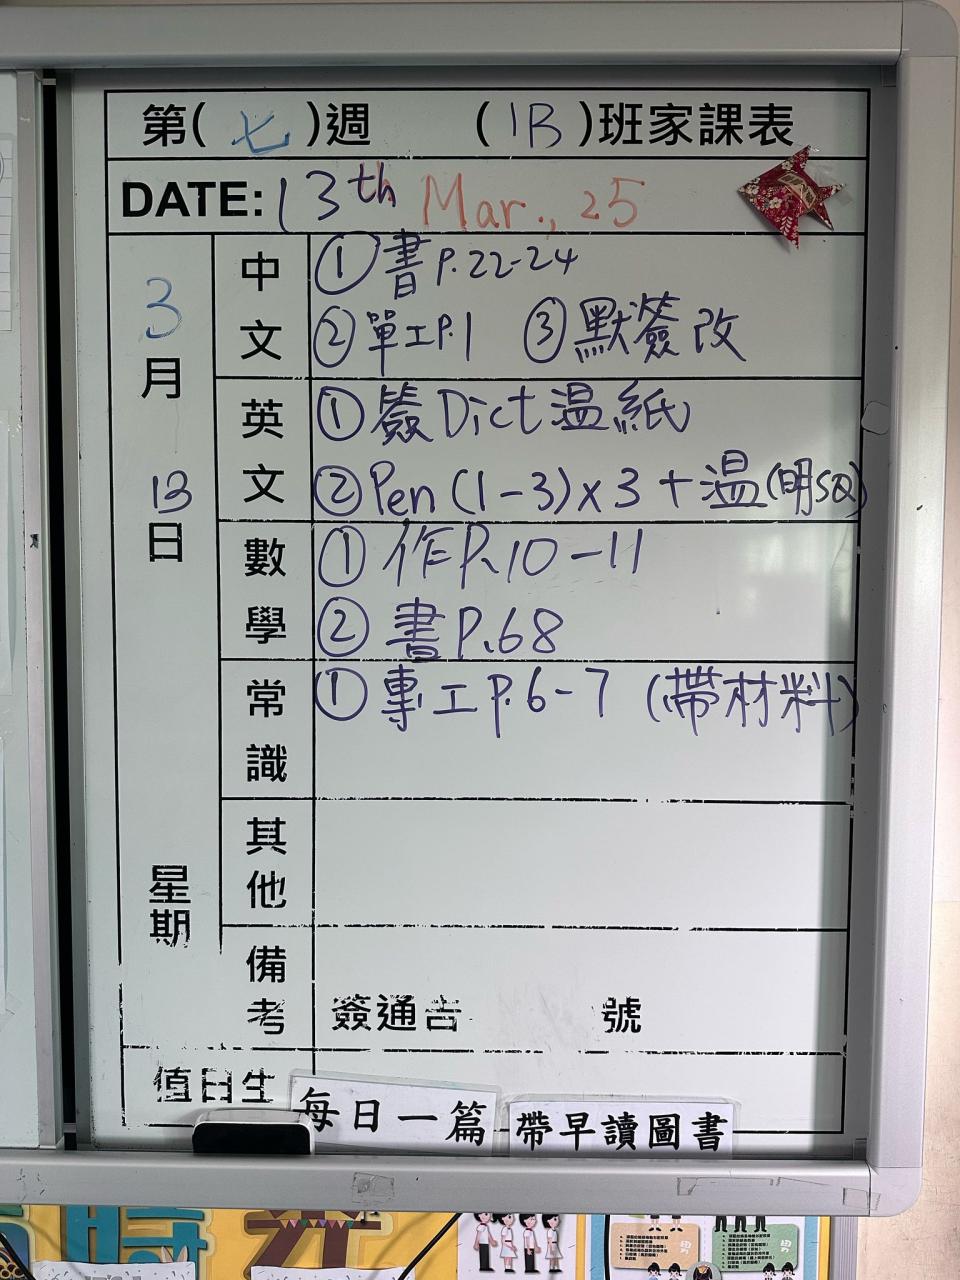 第(七)週 (1B)班家課表
DATE: 13th Mar., 25
3月13日 星期
中文 ①書P.22-24
②單工P.1 ③默簽改
英文 ①簽Dict溫紙
②Pen(1-3)x3+温(明SQ)
數學 ①作P.10-11
②書P.68
常識 ①專工P.6-7 (帶材料)
其他
備考 簽通告 號
值日生
每日一篇 帶早讀圖書